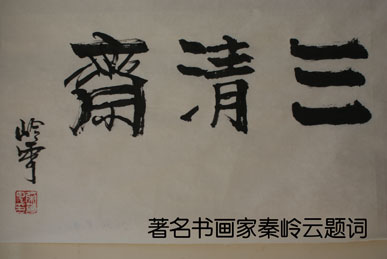 三清齋
岭雲
著名书画家秦岭云题词